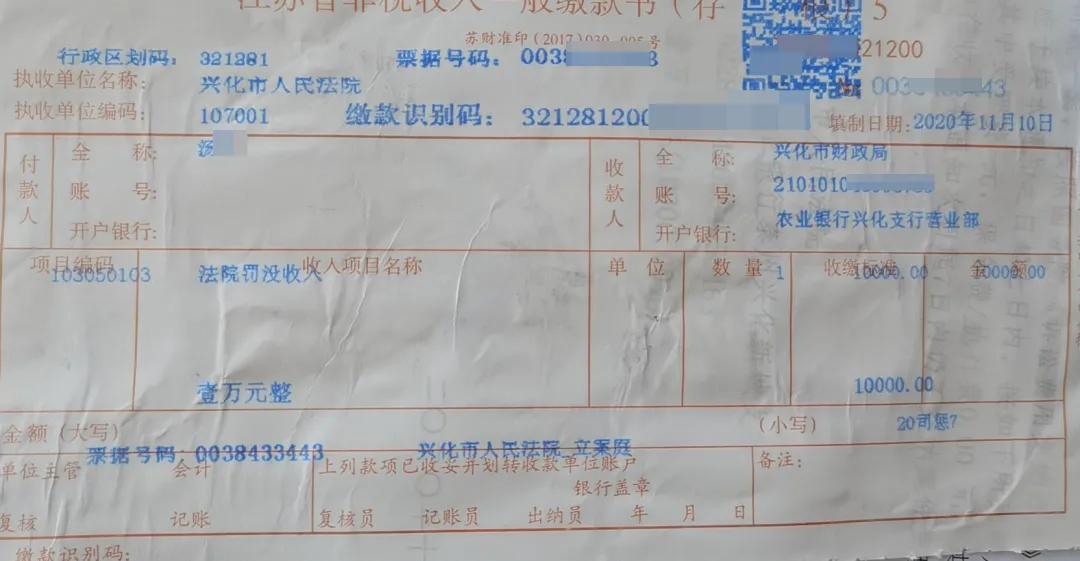 江苏省非税收入一般缴款书(存
苏财准印(2017)030-005号
行政区划码: 321281 票据号码: 003
21200
执收单位名称: 兴化市人民法院
执收单位编码: 107001 缴款识别码: 321281200 填制日期: 2020年11月10日
付款人 全 称: 汤 收款人 全 称: 兴化市财政局
账 号: 账 号: 2101010
开户银行: 开户银行: 农业银行兴化支行营业部
项目编码 收入项目名称 单 位 数 量 收缴标准 金 额
103050103 法院罚没收入 1 10000.00 10000.00
壹万元整 10000.00
金额(大写) (小写) 20司您?
票据号码: 0038433443 兴化市人民法院 立案庭
单位主管 会计 上列款项已收妥并划转收款单位账户 备注:
银行盖章
复核 记账 复核员 记账员 出纳员 年 月 日
缴款识别码: